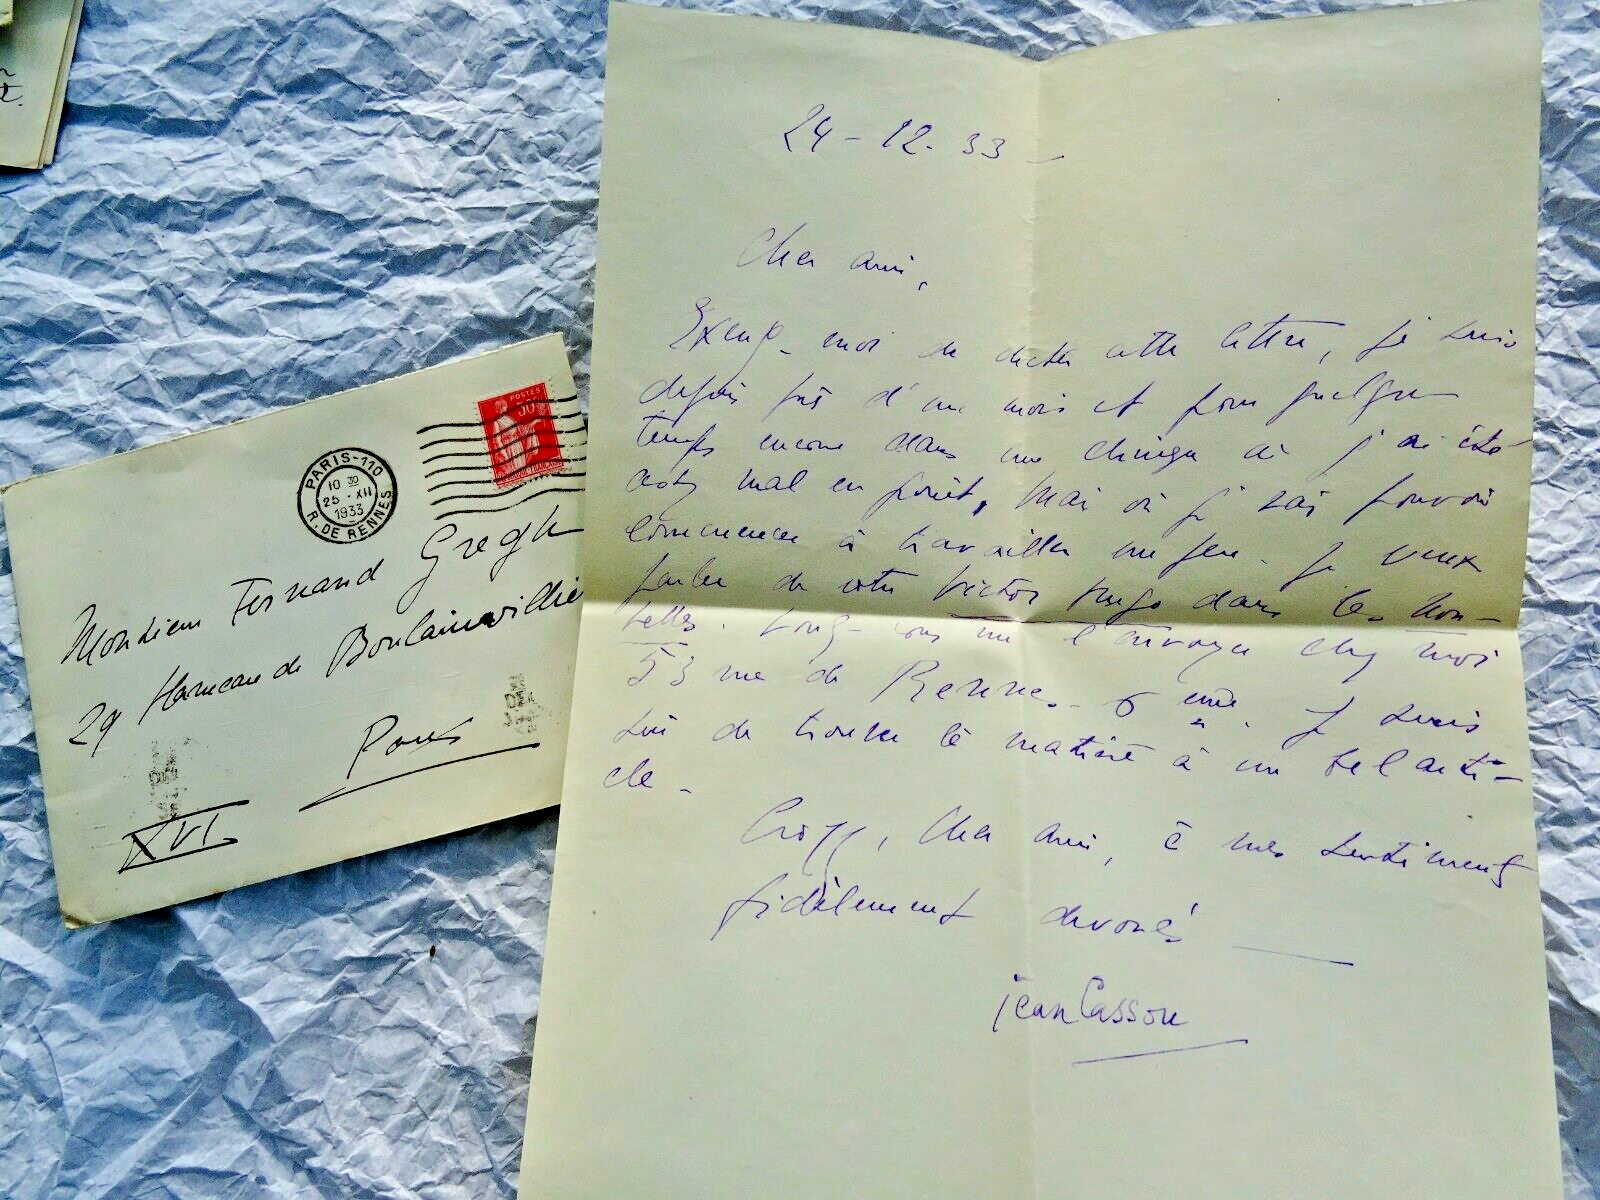 24-12-33
Cher ami,
Excusez-moi de dicter cette lettre, je suis
depuis près d'un mois et pour quelque
temps encore dans une clinique où j'ai été
assez mal en point, mais où je vais pouvoir
commencer à travailler un peu. Je veux
parler de votre Victor Hugo dans les Nou-
velles. Voulez-vous me l'envoyer chez moi
53 rue de Rennes. 6ème. Je suis
sûr de trouver là matière à un bel arti-
cle.
Croyez, cher ami, à mes sentiments
fidèlement dévoués
Jean Cassou
POSTES
50c
PARIS-110
10 30
25 - XII
1933
R. DE RENNES
Monsieur Fernand Gregh
29 Hameau de Boulainvilliers
Paris
XVI